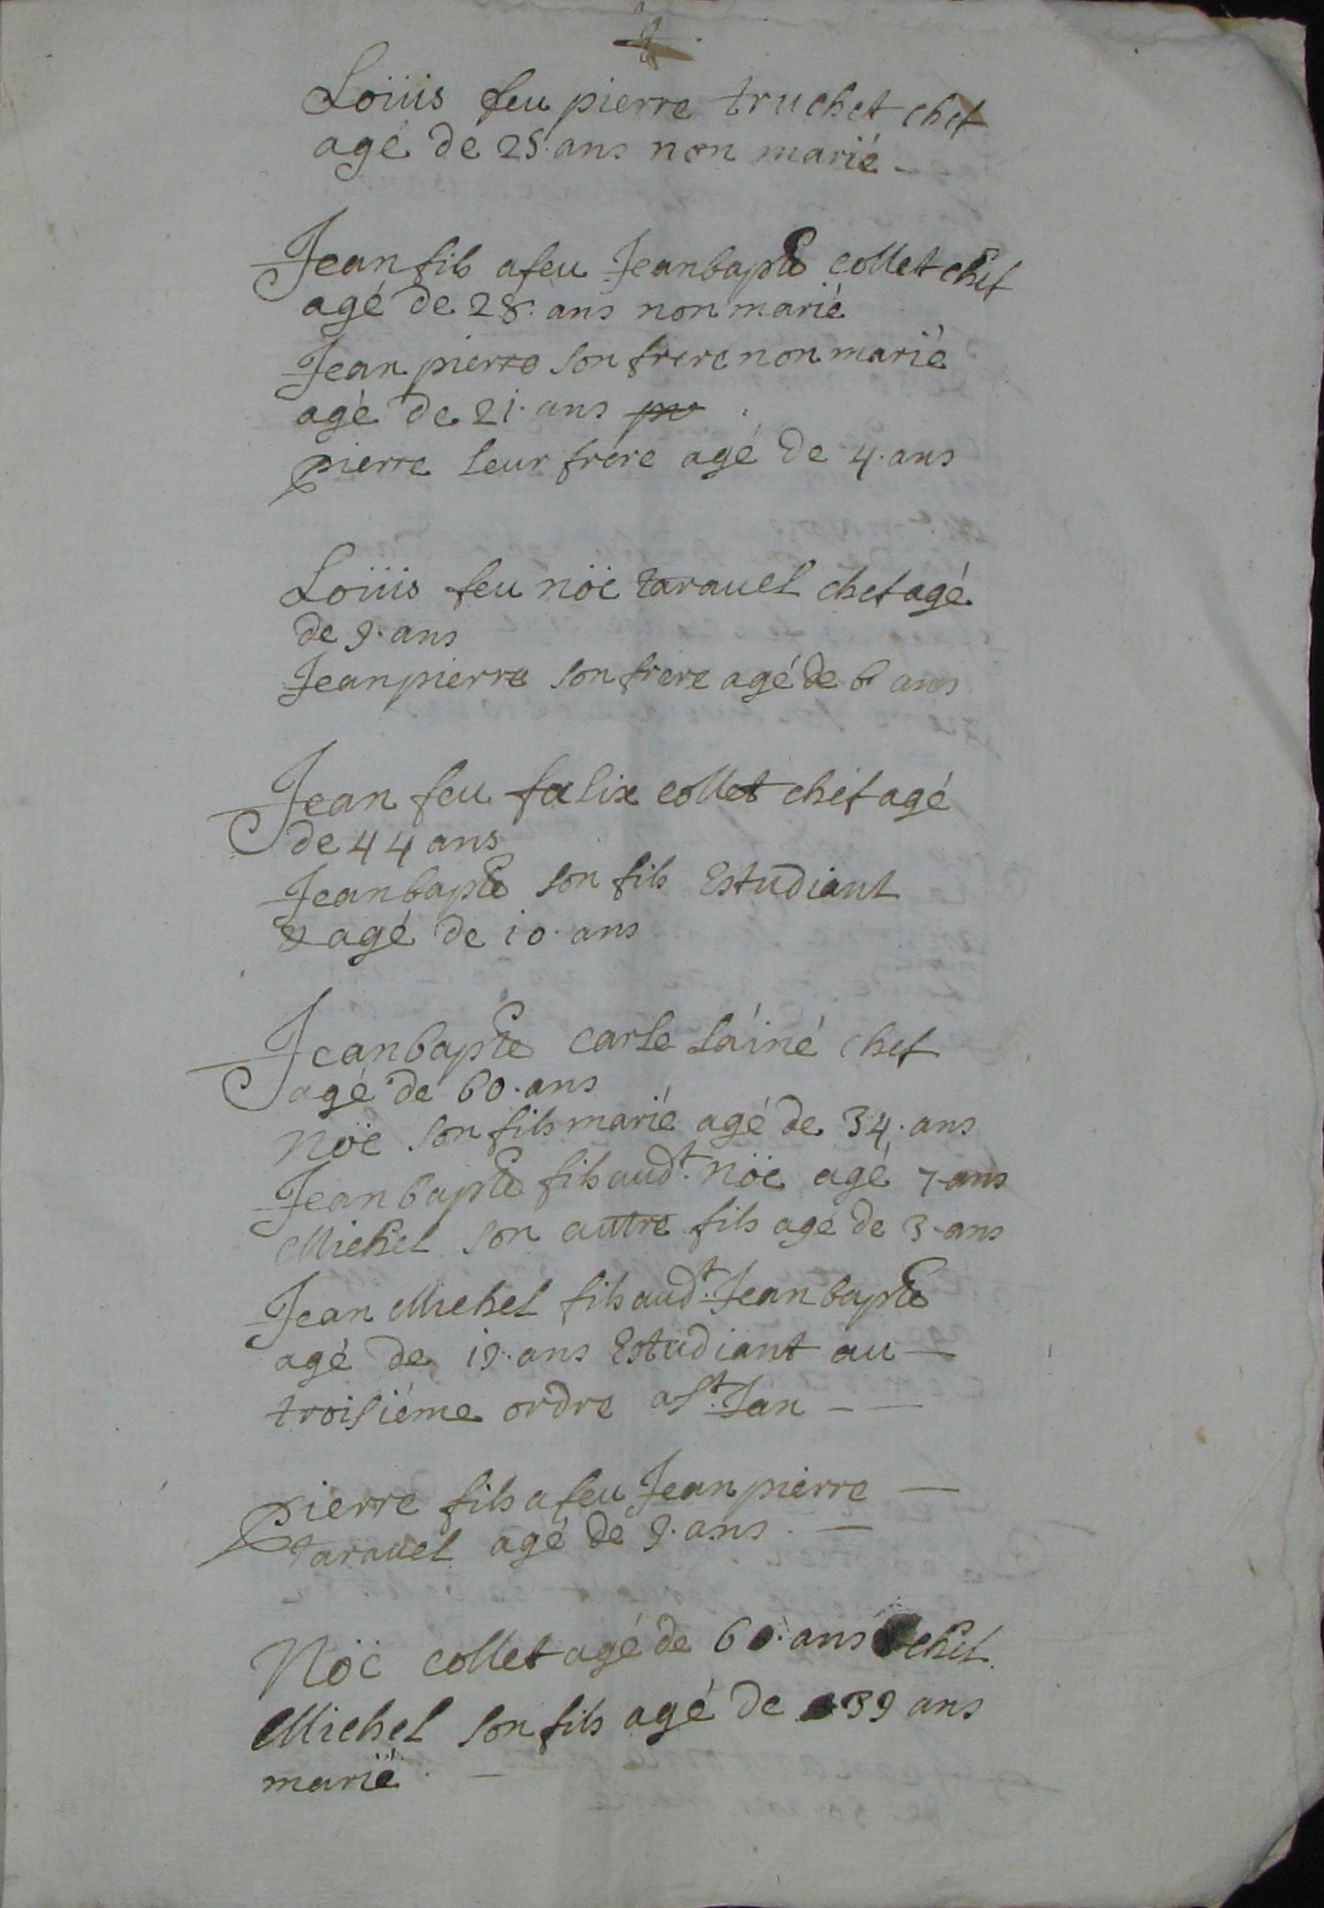 Loüis feu pierre truchet chef
agé de 25 ans non marié
Jean fils a feu Jeanbapte collet chef
agé de 28 ans non marié
Jean pierre son frere non marié
agé de 21 ans
pierre leur frére agé de 4 ans
Loüis feu nöe taravel chef agé
de 9 ans
Jeanpierre son frere agé de 6 ans
Jean feu falix collet chef agé
de 44 ans
Jeanbapte son fils Estudiant
agé de 10 ans
Jeanbapte carle láiné chef
agé de 60 ans
Nöe son fils marié agé de 34 ans
Jeanbapte fils audt nöe agé 7 ans
Michel son autre fils agé de 3 ans
Jean Michel fils audt Jeanbapte
agé de 19 ans Estudiant au
troisiéme ordre a St Jan
pierre fils a feu Jean pierre
taravel agé de 9 ans
Nöe collet agé de 60 ans chef
Michel son fils agé de 39 ans
marié